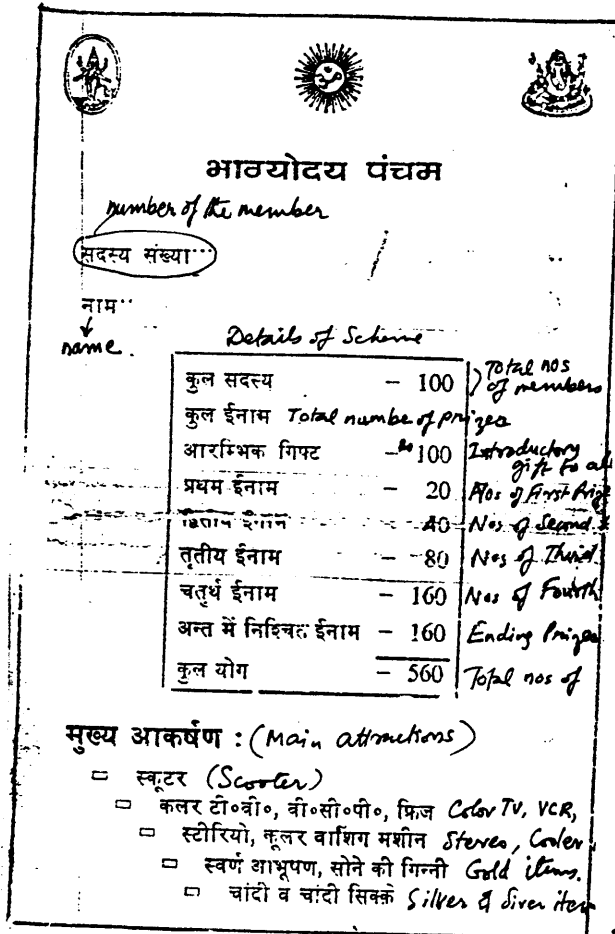 भाग्योदय पंचम
number of the member
सदस्य संख्या
नाम
name.
Details of Scheme
कुल सदस्य - 100 Total nos of members
कुल ईनाम Total number of prizes
आरम्भिक गिफ्ट - 100 Introductory gift to all
प्रथम ईनाम - 20 Nos of First Prize
द्वितीय ईनाम - 40 Nos of Second
तृतीय ईनाम - 80 Nos of Third
चतुर्थ ईनाम - 160 Nos of Fourth
अन्त में निश्चित ईनाम - 160 Ending Prizes
कुल योग - 560 Total nos of
मुख्य आकर्षण : (Main attractions)
स्कूटर (Scooter)
कलर टी०वी०, वी०सी०पी०, फ्रिज Color TV, VCR,
स्टीरियो, कूलर वाशिंग मशीन Stereo, Cooler
स्वर्ण आभूषण, सोने की गिन्नी Gold items.
चांदी व चांदी सिक्के Silver & Siver item